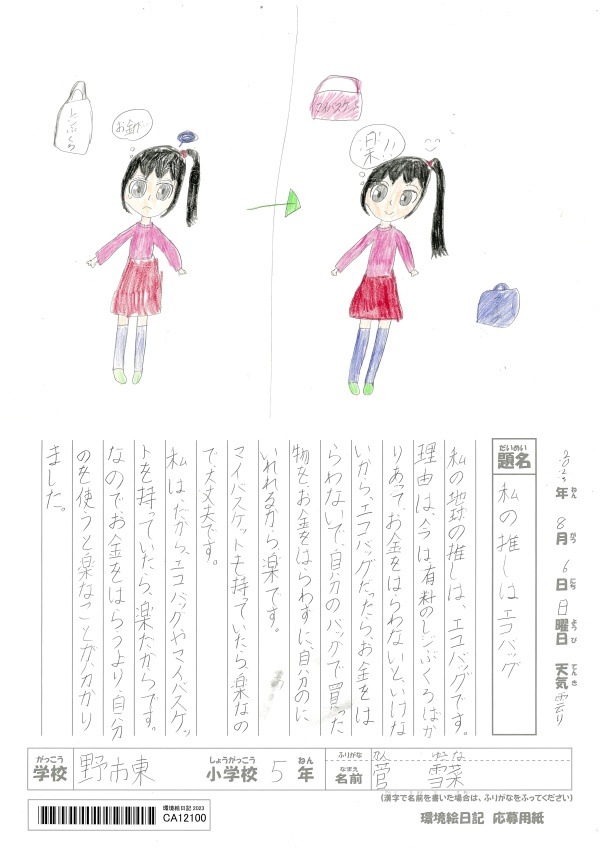 レジぶくろ
お金が
マイバスケット
楽!!
2023年 8月 6日 日曜日 天気 曇り
ねん がつ にち ようび てんき
だいめい
題名
私の推しはエコバッグ
私の地球の推しは、エコバッグです。
理由は、今は有料のレジぶくろばか
りあって、お金をはらわないといけな
いから、エコバッグだったらお金をは
らわないで、自分のバッグで買った
物を、お金をはらわずに、自分のに
いれれるから、楽です。
マイバスケットも持っていたら、楽なの
で大丈夫です。
私は、だから、エコバッグやマイバスケッ
トを持っていたら、楽だからです。
なのでお金をはらうより、自分
のを使うと楽なことが分かり
ました。
がっこう
学校
野市東
しょうがっこう
小学校
5
ねん
年
ふりがな
かん ゆな
なまえ
名前
菅 雪菜
(漢字で名前を書いた場合は、ふりがなをふってください)
環境絵日記 2023
CA12100
環境絵日記 応募用紙